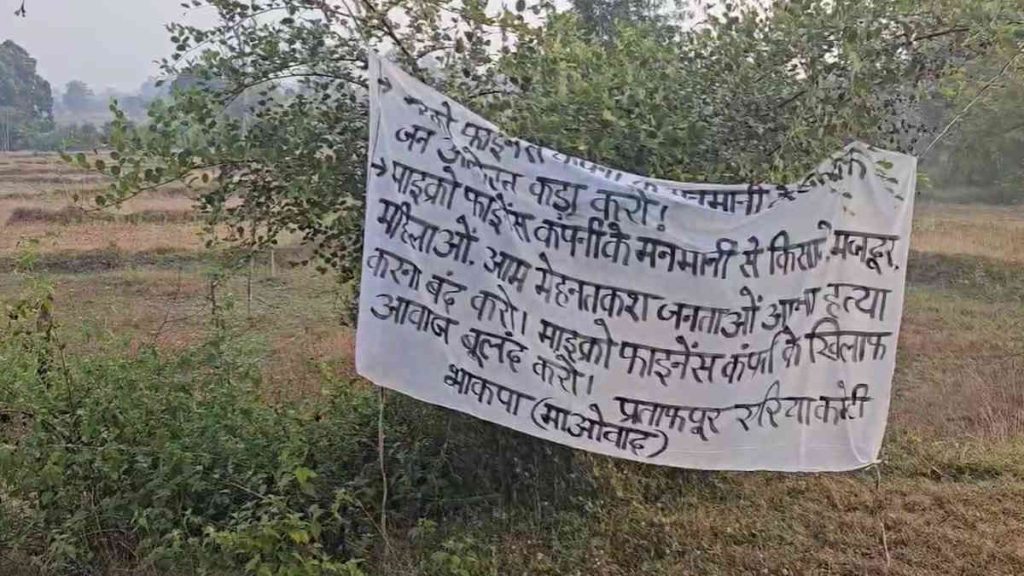 → फाइनेंस मनमानी के
जन कड़ा करो!
→ माइक्रो फाइनेंस कंपनी के मनमानी से किसान, मजदूर,
महिलाओं, आम मेहनतकश जनताओं आत्म हत्या
करना बंद करो। माइक्रो फाइनेंस कंपनी के खिलाफ
आवाज बूलंद करो।
प्रतापपूर एरिया कमेटी
भाकपा (माओवाद)